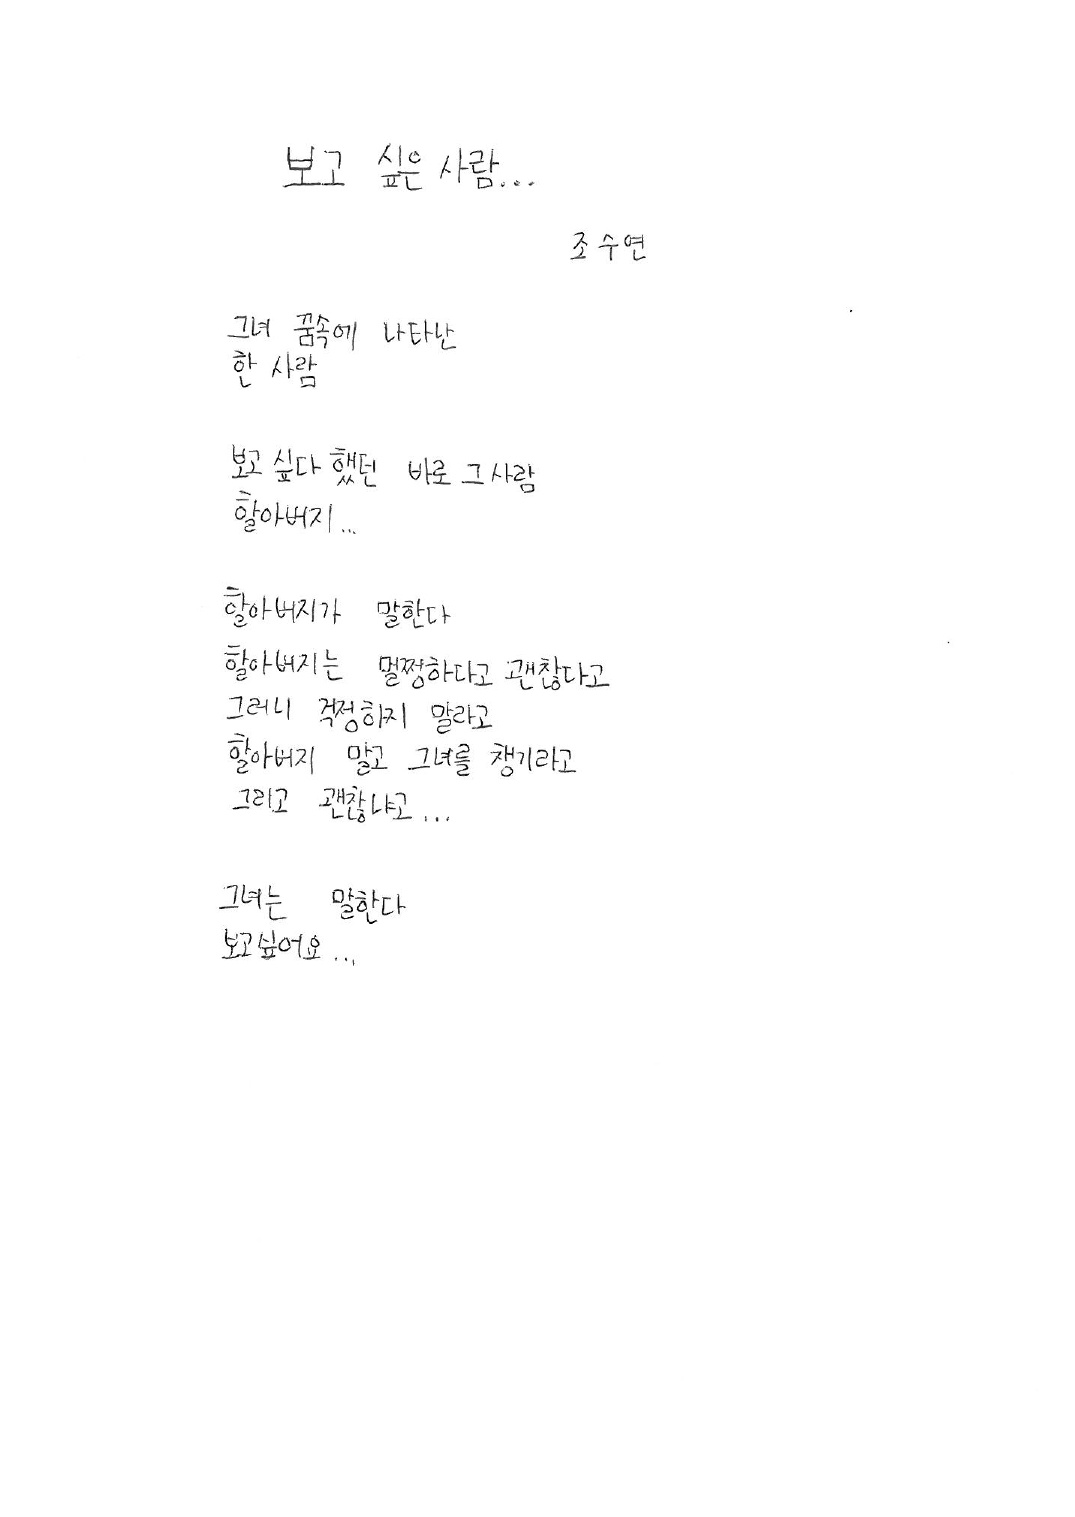 보고 싶은 사람...
조수연
그녀 꿈속에 나타난
한 사람
보고 싶다 했던 바로 그 사람
할아버지...
할아버지가 말한다
할아버지는 멀쩡하다고 괜찮다고
그러니 걱정하지 말라고
할아버지 말고 그녀를 챙기라고
그리고 괜찮냐고...
그녀는 말한다
보고싶어요...